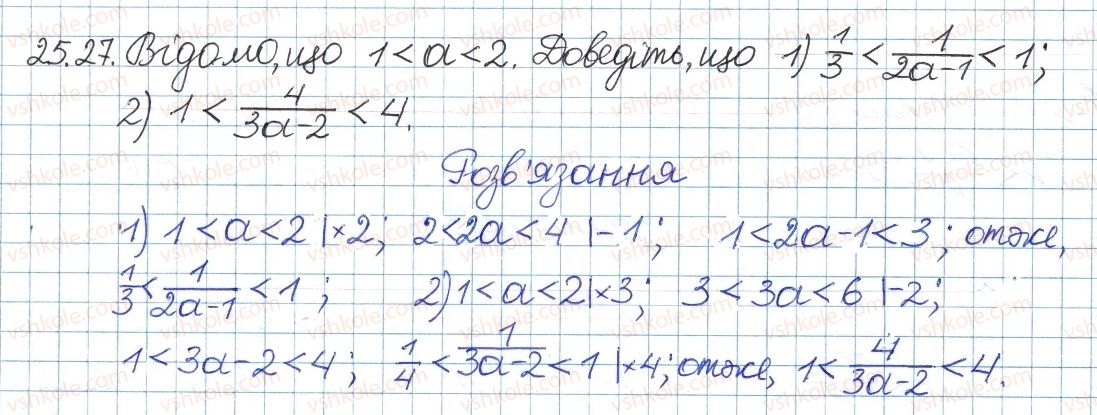 25.27. Відомо, що 1 < a < 2. Доведіть, що 1) 1/3 < 1/(2a-1) < 1;
2) 1 < 4/(3a-2) < 4.
Розв'язання
1) 1 < a < 2 |×2; 2 < 2a < 4 |-1; 1 < 2a-1 < 3; отже,
1/3 < 1/(2a-1) < 1; 2) 1 < a < 2 |×3; 3 < 3a < 6 |-2;
1 < 3a-2 < 4; 1/4 < 1/(3a-2) < 1 |×4; отже, 1 < 4/(3a-2) < 4.